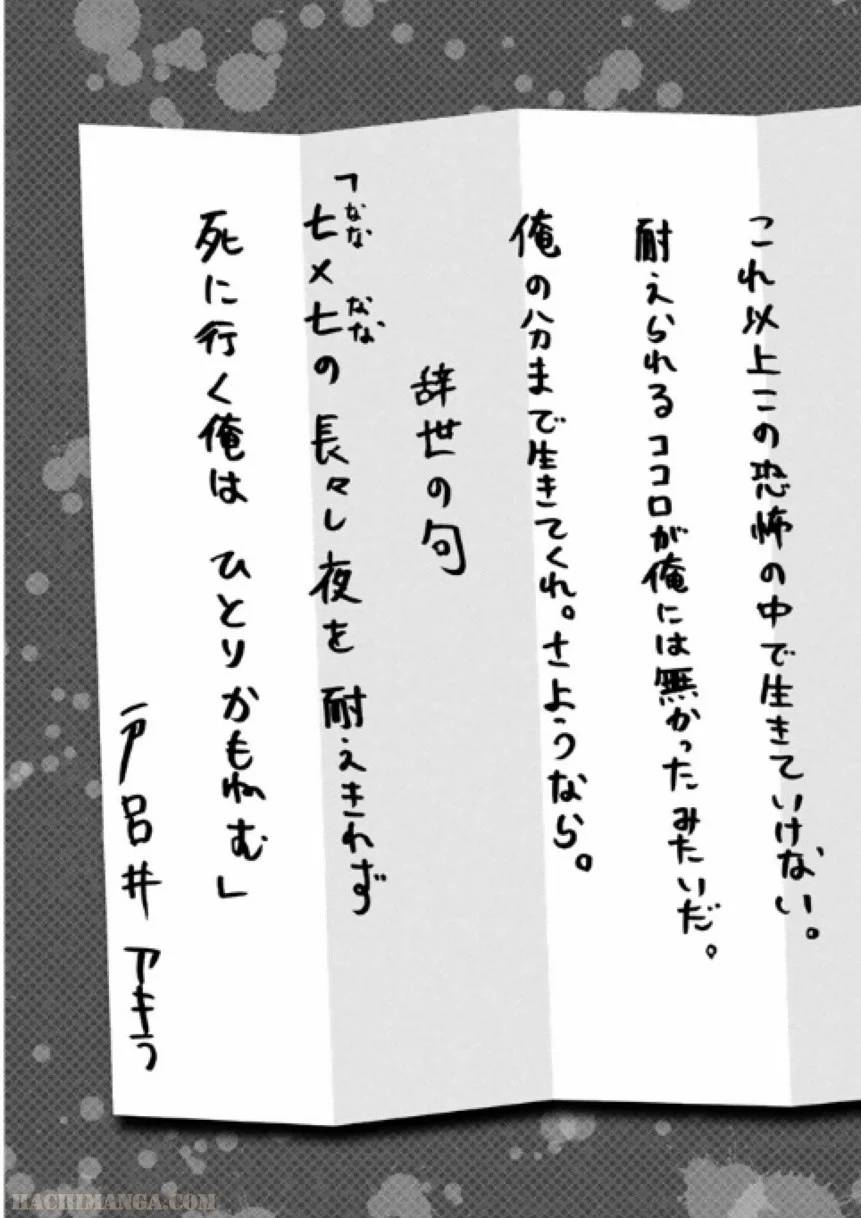 これ以上この恐怖の中で生きていけない。
耐えられるココロが俺には無かったみたいだ。
俺の分まで生きてくれ。さようなら。
辞世の句
「七×七の長々し夜を 耐えきれず
なな なな
死に行く俺は ひとりかもねむ」
戸呂井 アキラ
HACHIMANGA.COM